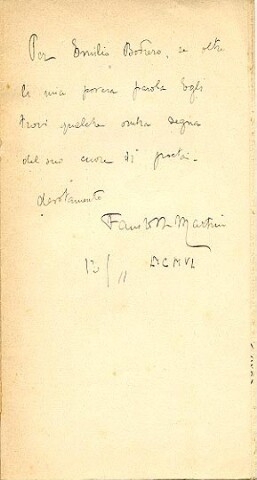 Per Emilio Bodrero, se oltre
la mia povera parola Egli
trovi qualche ombra degna
del suo cuore di poeta.
devotamente
Fausto M. Martini
13/11 MCMVI